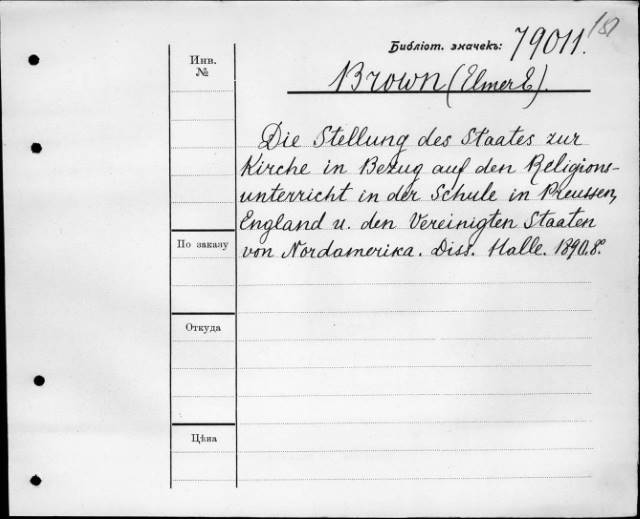 Библіот. значекъ: 79011.
Инв. №
Brown (Elmer E).
Die Stellung des Staates zur
Kirche in Bezug auf den Religions-
unterricht in der Schule in Preussen,
England u. den Vereinigten Staaten
von Nordamerika. Diss. Halle. 1890. 8°.
По заказу
Откуда
Цѣна